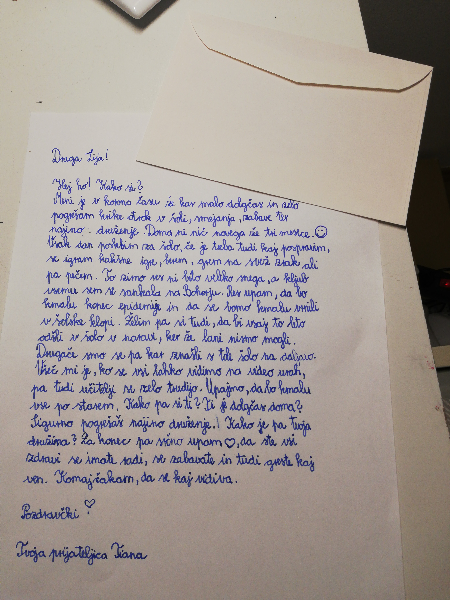 Draga Lija!
Hej ho! Kako si?
Meni je v korona času že kar malo dolgčas in zelo
pogrešam krike otrok v šoli, smejanja, zabave ter
najino druženje. Doma ni nič novega že tri mesece. ☺
Vsak dan poskrbim za šolo, če je treba tudi kaj pospravim,
se igram kakšne igre, berem, grem na svež zrak ali
pa pečem. To zimo res ni bilo veliko snega, a kljub
vsemu sem se sankala na Bohorju. Res upam, da bo
kmalu konec epidemije in da se bomo kmalu vrnili
v šolske klopi. Želim pa si tudi, da bi vsaj to leto
odšli v šolo v naravi, ker že lani nismo mogli.
Drugače smo se pa kar znašli s tole šolo na daljavo.
Všeč mi je, ko se vsi lahko vidimo na video urah,
pa tudi učitelji se zelo trudijo. Upajmo, da bo kmalu
vse po starem. Kako pa si ti? Ti je dolgčas doma?
Sigurno pogrešaš najino druženje! Kako je pa tvoja
družina? Za konec pa srčno upam ♡, da ste vsi
zdravi se imate radi, se zabavate in tudi greste kaj
ven. Komaj čakam, da se kaj vidiva.
Pozdravčki ♡
Tvoja prijateljica Tiana